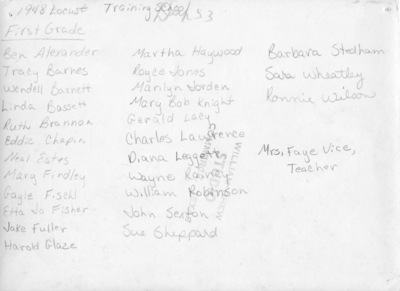 1948 Locust Training School
First Grade
Ben Alexander
Tracy Barnes
Wendell Barnett
Linda Bassett
Ruth Brannon
Eddie Chapin
Neal Estes
Mary Findley
Gayle Fisehl
Etta Jo Fisher
Jake Fuller
Harold Glaze
Martha Haywood
Royce Jones
Marilyn Jorden
Mary Bob Knight
Gerald Lacy
Charles Lawrence
Diana Leggett
Wayne Rainey
William Robinson
John Sexton
Sue Sheppard
Barbara Stedham
Sara Wheatley
Ronnie Wilson
Mrs. Faye Vice,
Teacher
STUDIO